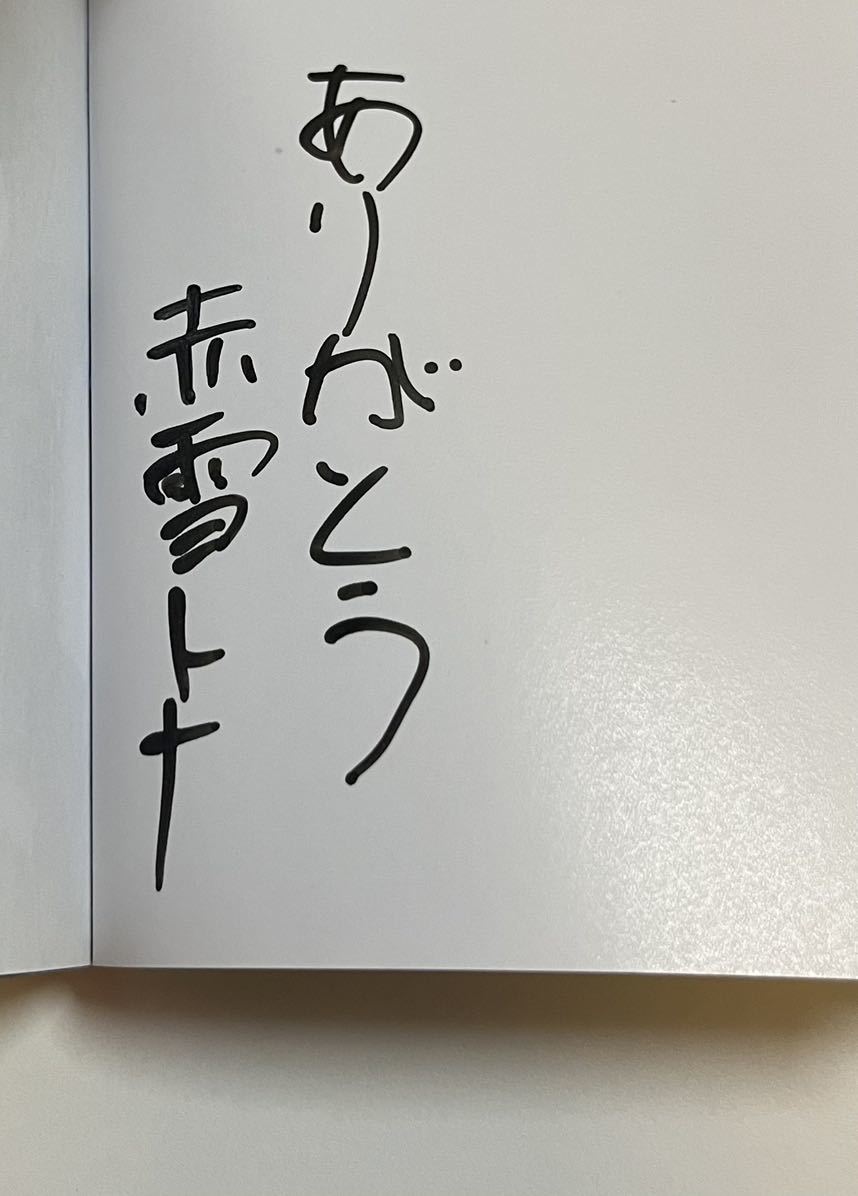 ありがとう
赤雪トナ